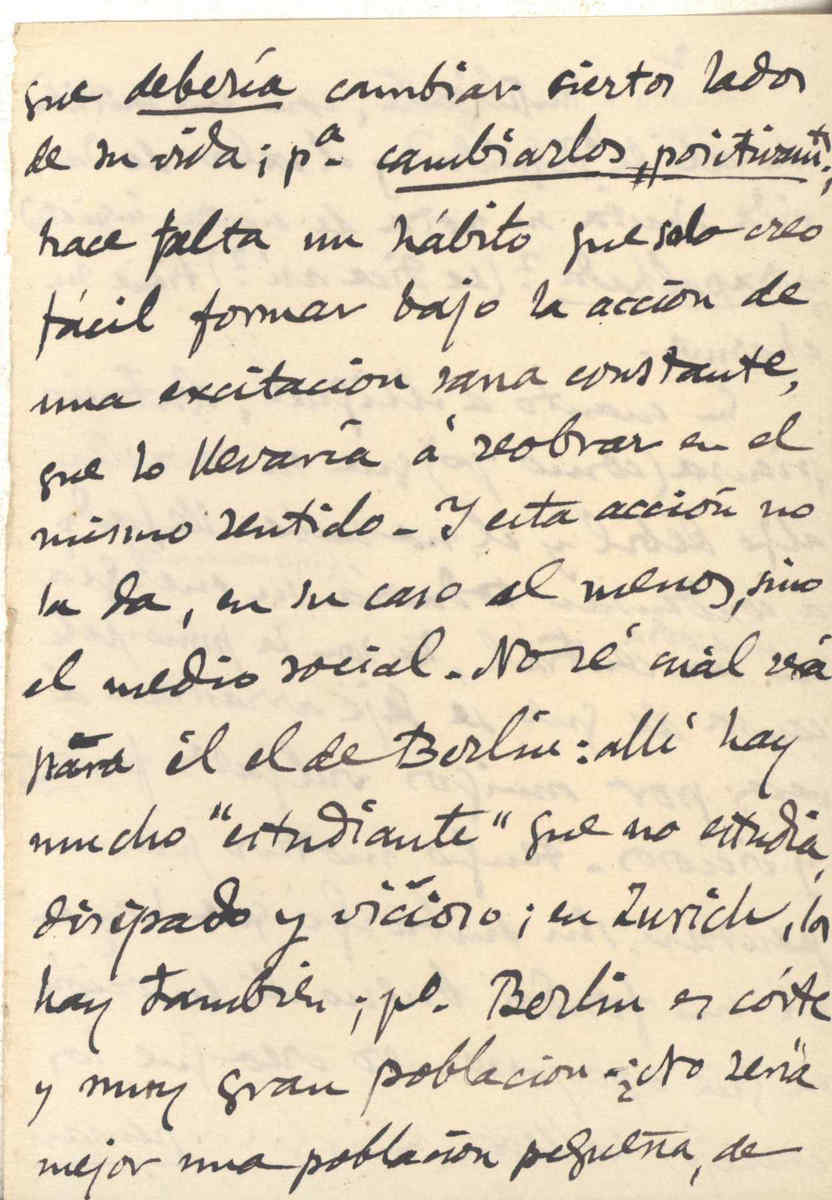 que debería cambiar ciertos lados
de su vida; pª. cambiarlos, positivamte.,
hace falta un hábito que solo creo
fácil formar bajo la acción de
una excitacion sana constante,
que lo llevaría á reobrar en el
mismo sentido. Y esta acción no
la da, en su caso al menos, sino
el medio social. No sé cuál será
para él el de Berlin: allí hay
mucho "estudiante" que no estudia,
disipado y vicioso; en Zurich, los
hay tambien; po. Berlin es córte
y muy gran poblacion. ¿No sería
mejor una poblacion pequeña, de